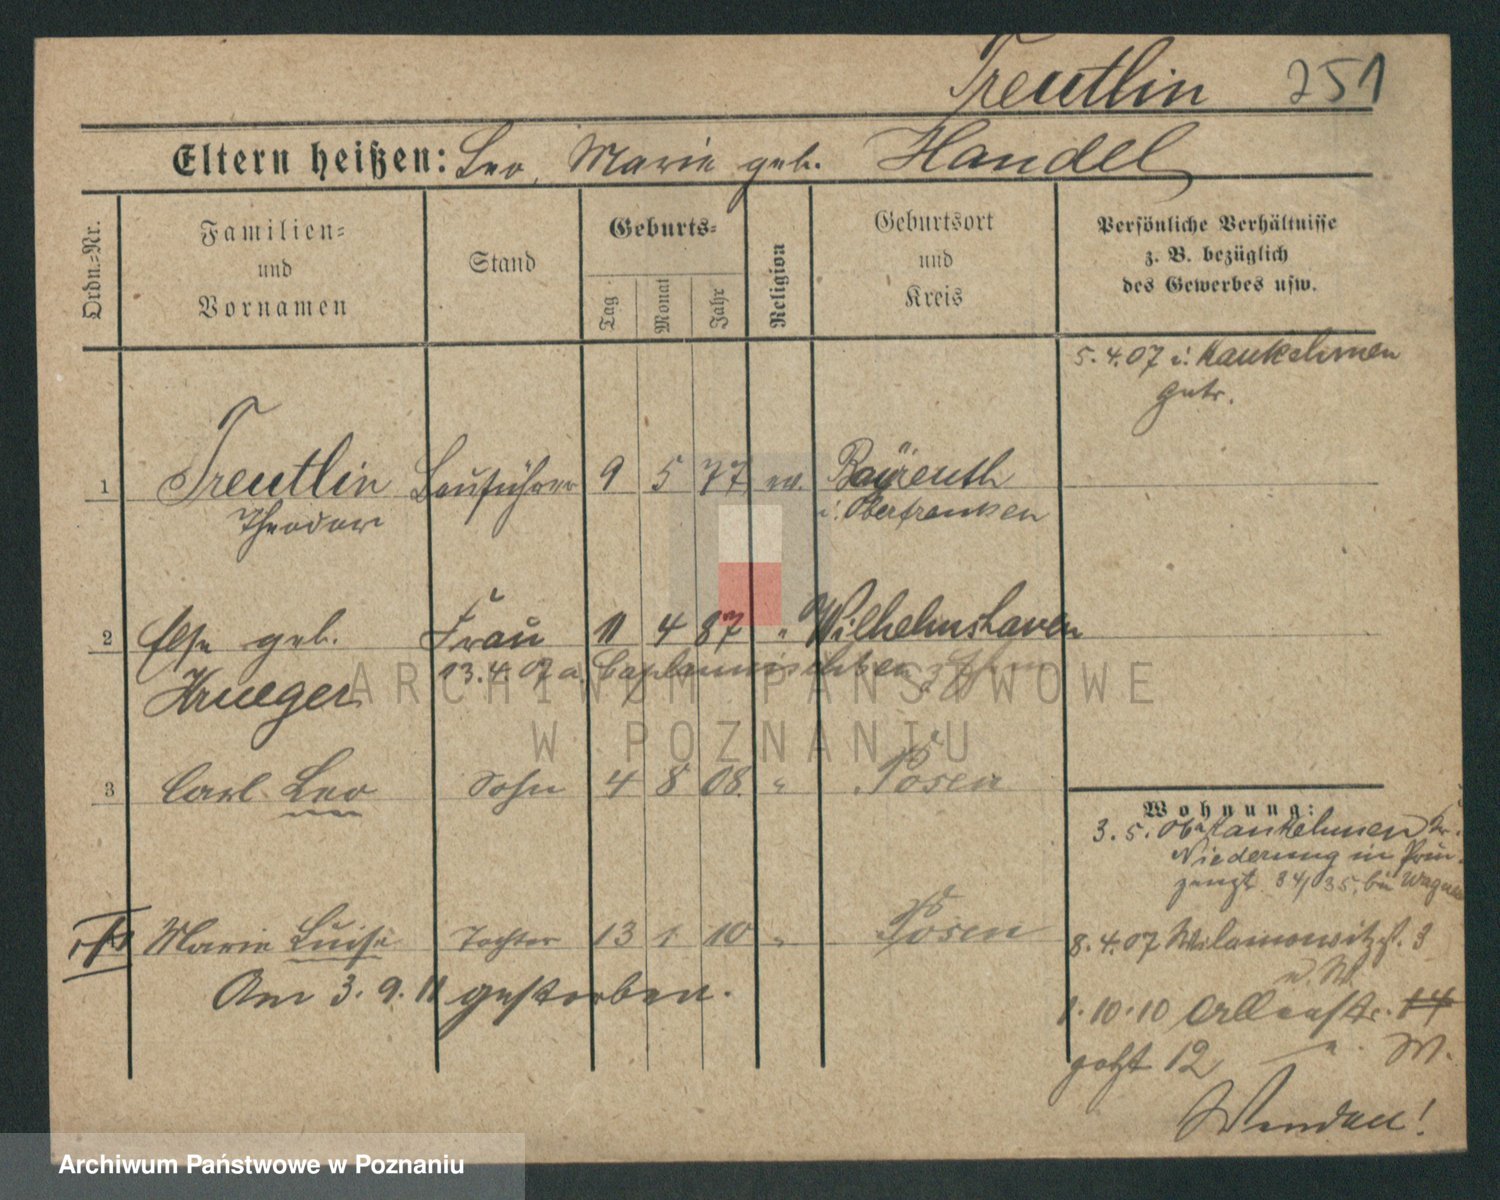 Treutlin 251
Eltern heißen: Leo, Marie geb. Handel
Ordn.-Nr.
Familien-
und
Vornamen
Stand
Geburts-
Tag
Monat
Jahr
Religion
Geburtsort
und
Kreis
Persönliche Verhältnisse
z. B. bezüglich
des Gewerbes usw.
5.4.07 i. Kaukehmen
getr.
1 Treutlin Bauführer 9 5 77 ev. Bayreuth
Theodor i. Oberfranken
2 Else geb. Frau 11 4 87 " Wilhelmshaven
Krueger 13.4.07 a.
3 Carl Leo Sohn 4 8 08. " Posen
Marie Luise Tochter 13 1. 10 " Posen
Am 3.9.11 gestorben.
Wohnung:
3.5.06 Kaukehmen Kr.
Niederung in
34/35. bei
8.4.07 Wilamowitzst. 3
1.10.10 14
12 W.
Wenden!
ARCHIWUM PAŃSTWOWE
W POZNANIU
Archiwum Państwowe w Poznaniu